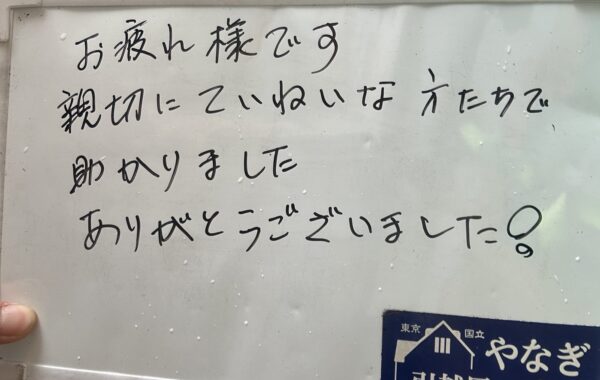 お疲れ様です
親切にていねいな方たちで
助かりました
ありがとうございました!
東京 国立
やなぎ